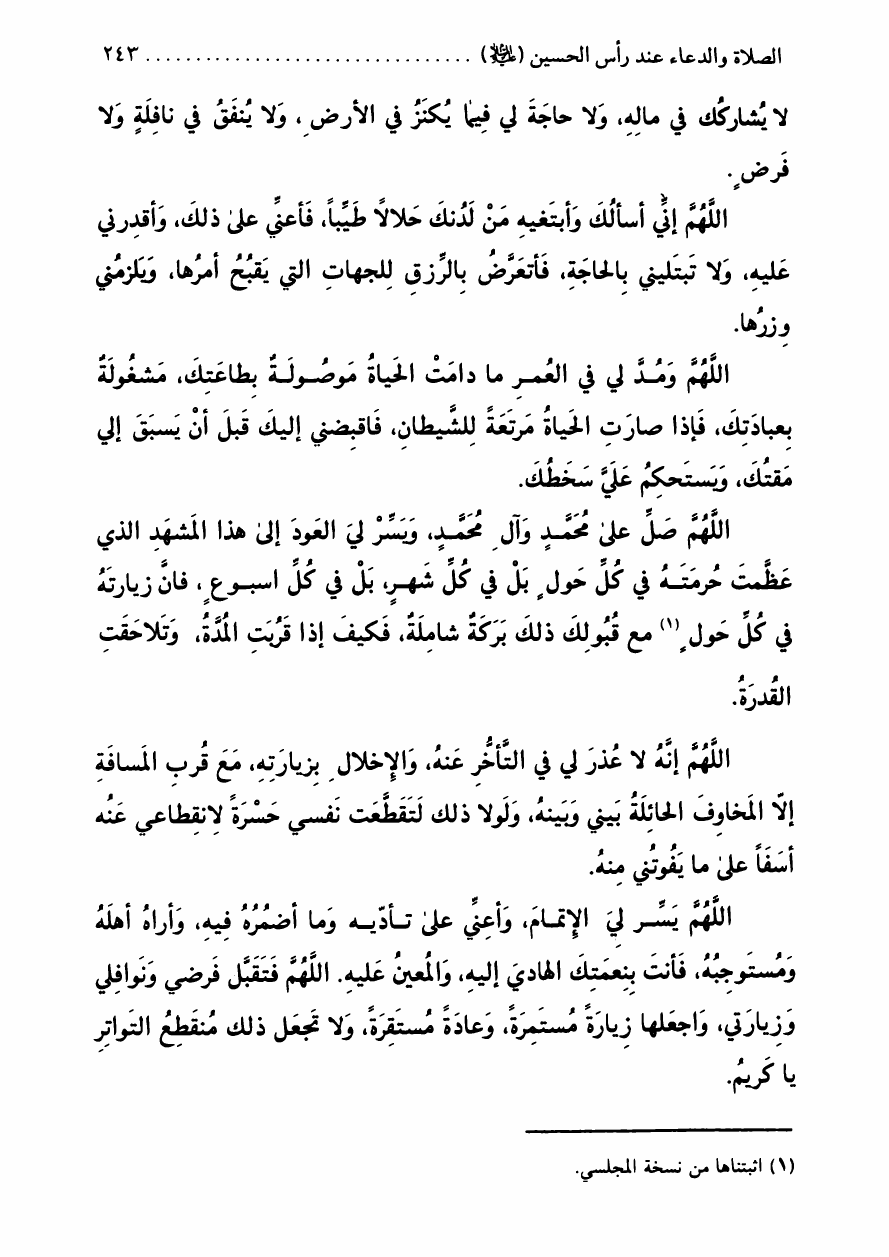 الصلاة والدعاء عند رأس الحسين (عليه السلام) ................................ ٢٤٣
لا يُشاركُك في مالِهِ، وَلا حاجَةَ لي فيما يُكنَزُ في الأرضِ، وَلا يُنفَقُ في نافِلَةٍ وَلا
فَرضٍ.
اللَّهُمَّ إنِّي أسألُكَ وَأبتَغيهِ مَنْ لَدُنكَ حَلالاً طَيِّباً، فَأعنِّي عَلىٰ ذلكَ، وَأقدِرني
عَليهِ، وَلا تَبتَليني بِالحاجَةِ، فَأتعَرَّضُ بالرِّزقِ لِلجهاتِ التي يَقبُحُ أمرُها، وَيَلزمُني
وِزرُها.
اللَّهُمَّ وَمُدَّ لي في العُمرِ ما دامَتْ الحَياةُ مَوصُولَةٌ بِطاعَتِكَ، مَشغُولَةٌ
بِعبادَتِكَ، فَإذا صارَتِ الحَياةُ مَرتَعَةً لِلشَّيطانِ، فَاقبِضني إليكَ قَبلَ أنْ يَسبَقَ إلي
مَقتُكَ، وَيَستَحكِمُ عَلَيَّ سَخَطُكَ.
اللَّهُمَّ صَلِّ عَلىٰ مُحَمَّدٍ وَآلِ مُحَمَّدٍ، وَيَسِّرْ لِيَ العَودَ إلىٰ هذا المَشهَدِ الذي
عَظَّمتَ حُرمَتَهُ في كُلِّ حَولٍ بَلْ في كُلِّ شَهرٍ، بَلْ في كُلِّ اسبوعٍ، فانَّ زيارتَهُ
في كُلِّ حَولٍ(١) مع قُبُولِكَ ذلكَ بَرَكَةٌ شامِلَةٌ، فَكيفَ إذا قَرُبَتِ المُدَّةُ، وَتَلاحَقَتِ
القُدرَةُ.
اللَّهُمَّ إنَّهُ لا عُذرَ لي في التَّأخُّرِ عَنهُ، وَالإخلالِ بِزيارَتِهِ، مَعَ قُربِ المَسافَةِ
إلّا المَخاوِفَ الحائلَةُ بَيني وَبَينهُ، وَلَولا ذلك لَتَقَطَّعَت نَفسي حَسْرَةً لانقِطاعي عَنُه
أسَفَاً علىٰ ما يَفُوتُني مِنهُ.
اللَّهُمَّ يَسِّر لِيَ الإتمامَ، وَأعنِّي عَلىٰ تأدّيهِ وَما أضمُرُهُ فيهِ، وَأراهُ أهلَهُ
وَمُستَوجِبُهُ، فَأنتَ بِنِعمَتِكَ الهاديَ إليهِ، وَالمُعينُ عَليهِ. اللَّهُمَّ فَتَقَبَّل فَرضي وَنَوافِلي
وَزيارَتي، وَاجعَلها زيارَةً مُستَمِرَةً، وَعادَةً مُستَقِرَةً، وَلا تَجعَل ذلك مُنقَطِعُ التَواترِ
يا كَريمُ.
(١) اثبتناها من نسخة المجلسي.